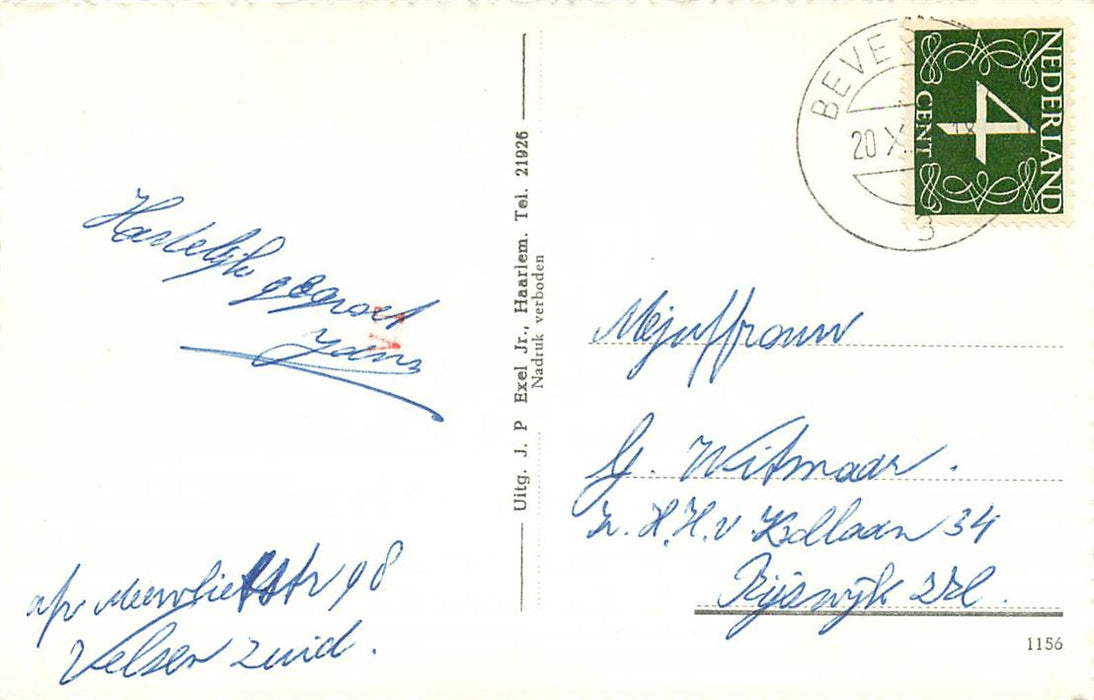 Hartelijk
gegroet
afz Meervlietstr 98
Velsen Zuid.
Uitg. J. P Exel Jr., Haarlem. Tel. 21926
Nadruk verboden
BEVER
20 X
3
NEDERLAND
4
CENT
Mejuffrouw
G. Witmaar.
H.H. v Kollaan 34
Rijswijk ZH.
1156